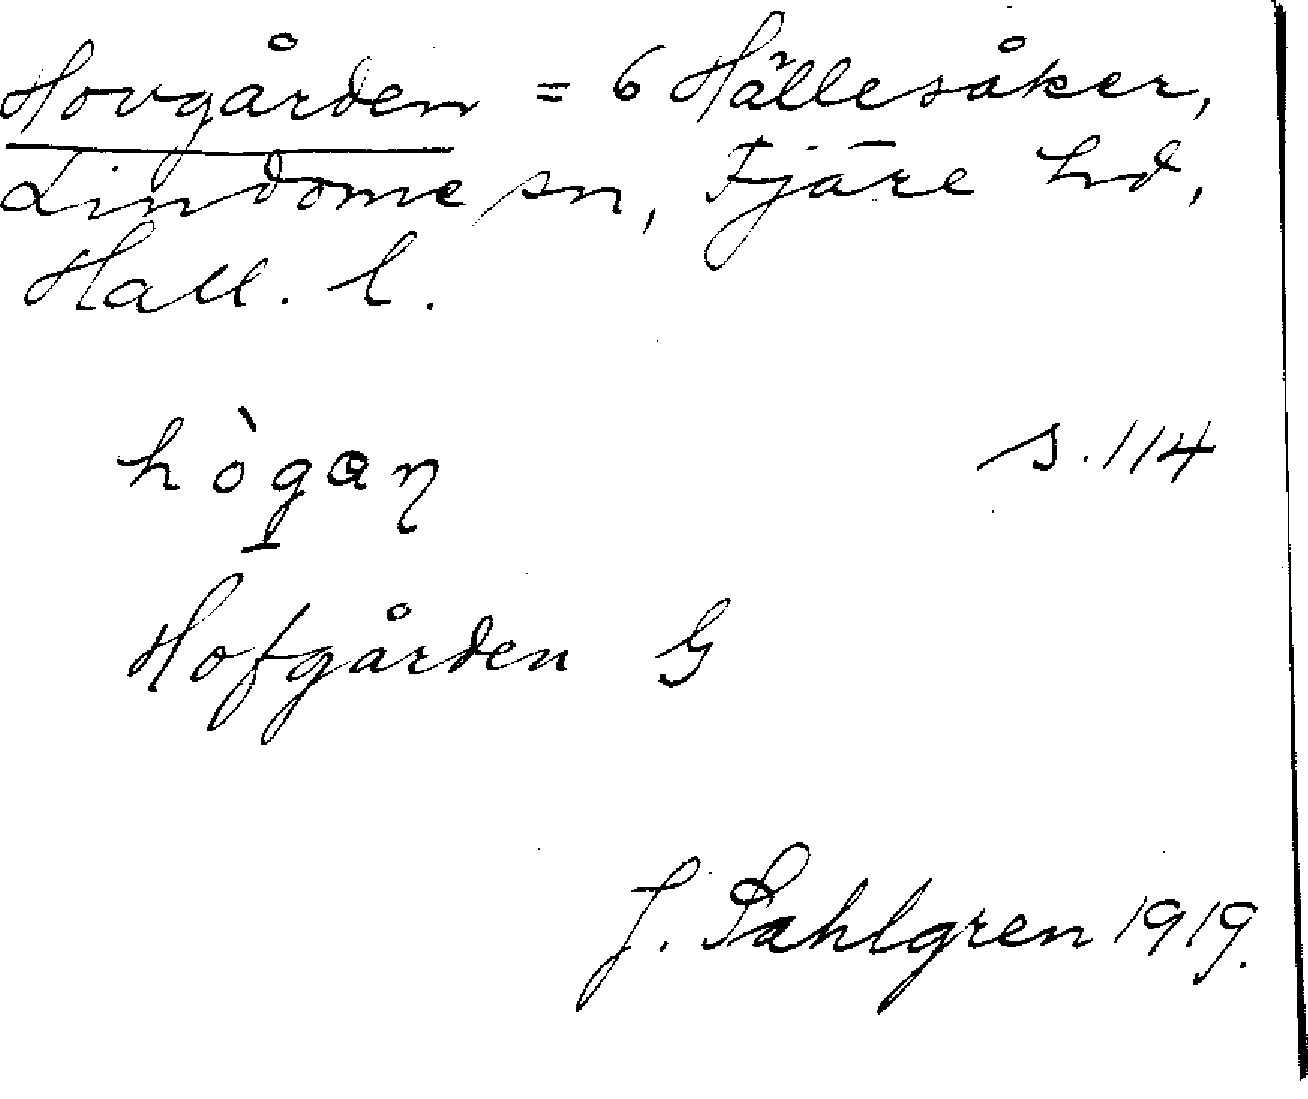 Hovgården = 6 Hällesåker,
Lindome sn, Fjäre hd,
Hall. l.
s. 114
Hofgården G
J. Sahlgren 1919.